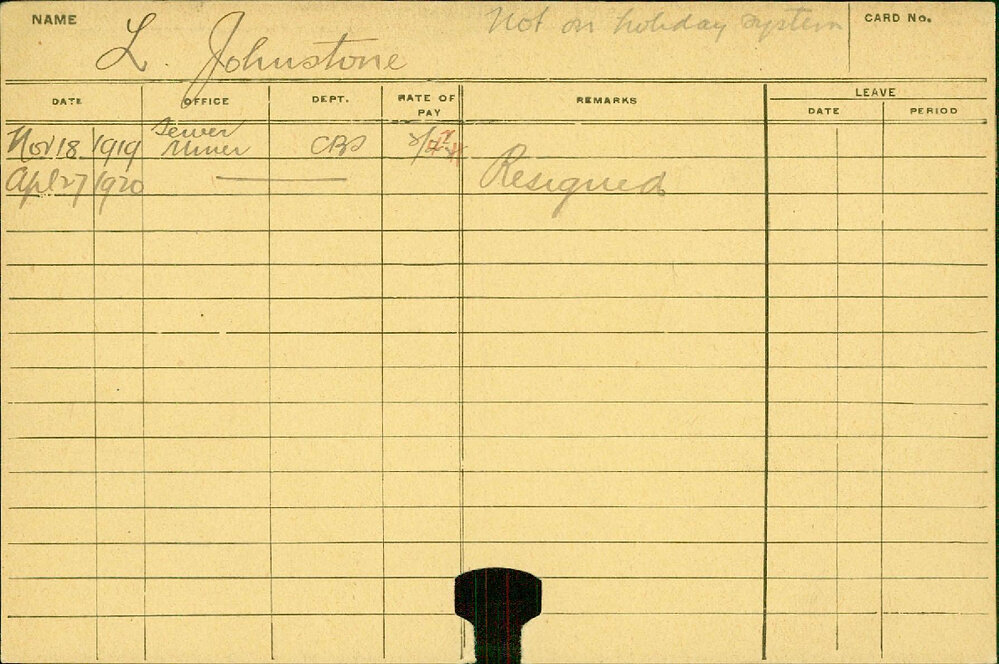 NAME
Not on holiday system
CARD No.
L. Johnstone
DATE OFFICE DEPT. RATE OF PAY REMARKS LEAVE
DATE PERIOD
Nov 18 1919 Sewer Miner CBS
Apl 27 1920 Resigned